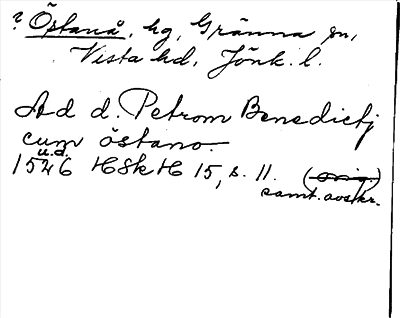 ? Östanå, hg, Gränna sn,
Vista hd, Jönk. l.
Ad d. Petrom Benedictj
cum östano.
u.d.
1546 HSkH 15, s. 11. (orig.)
samt. avskr.